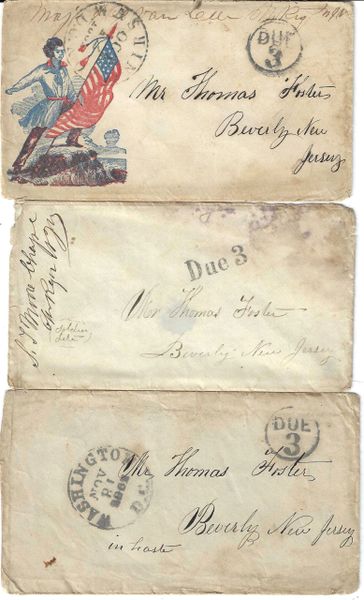 Maj
DUE
3
WASHIN
Mr Thomas Foster
Beverly New
Jersey
Due 3
Mr Thomas Foster
Beverly New Jersey
Soldier
DUE
3
WASHINGTON
D.C.
NOV
21
Mr Thomas Foster
Beverly New Jersey
in haste